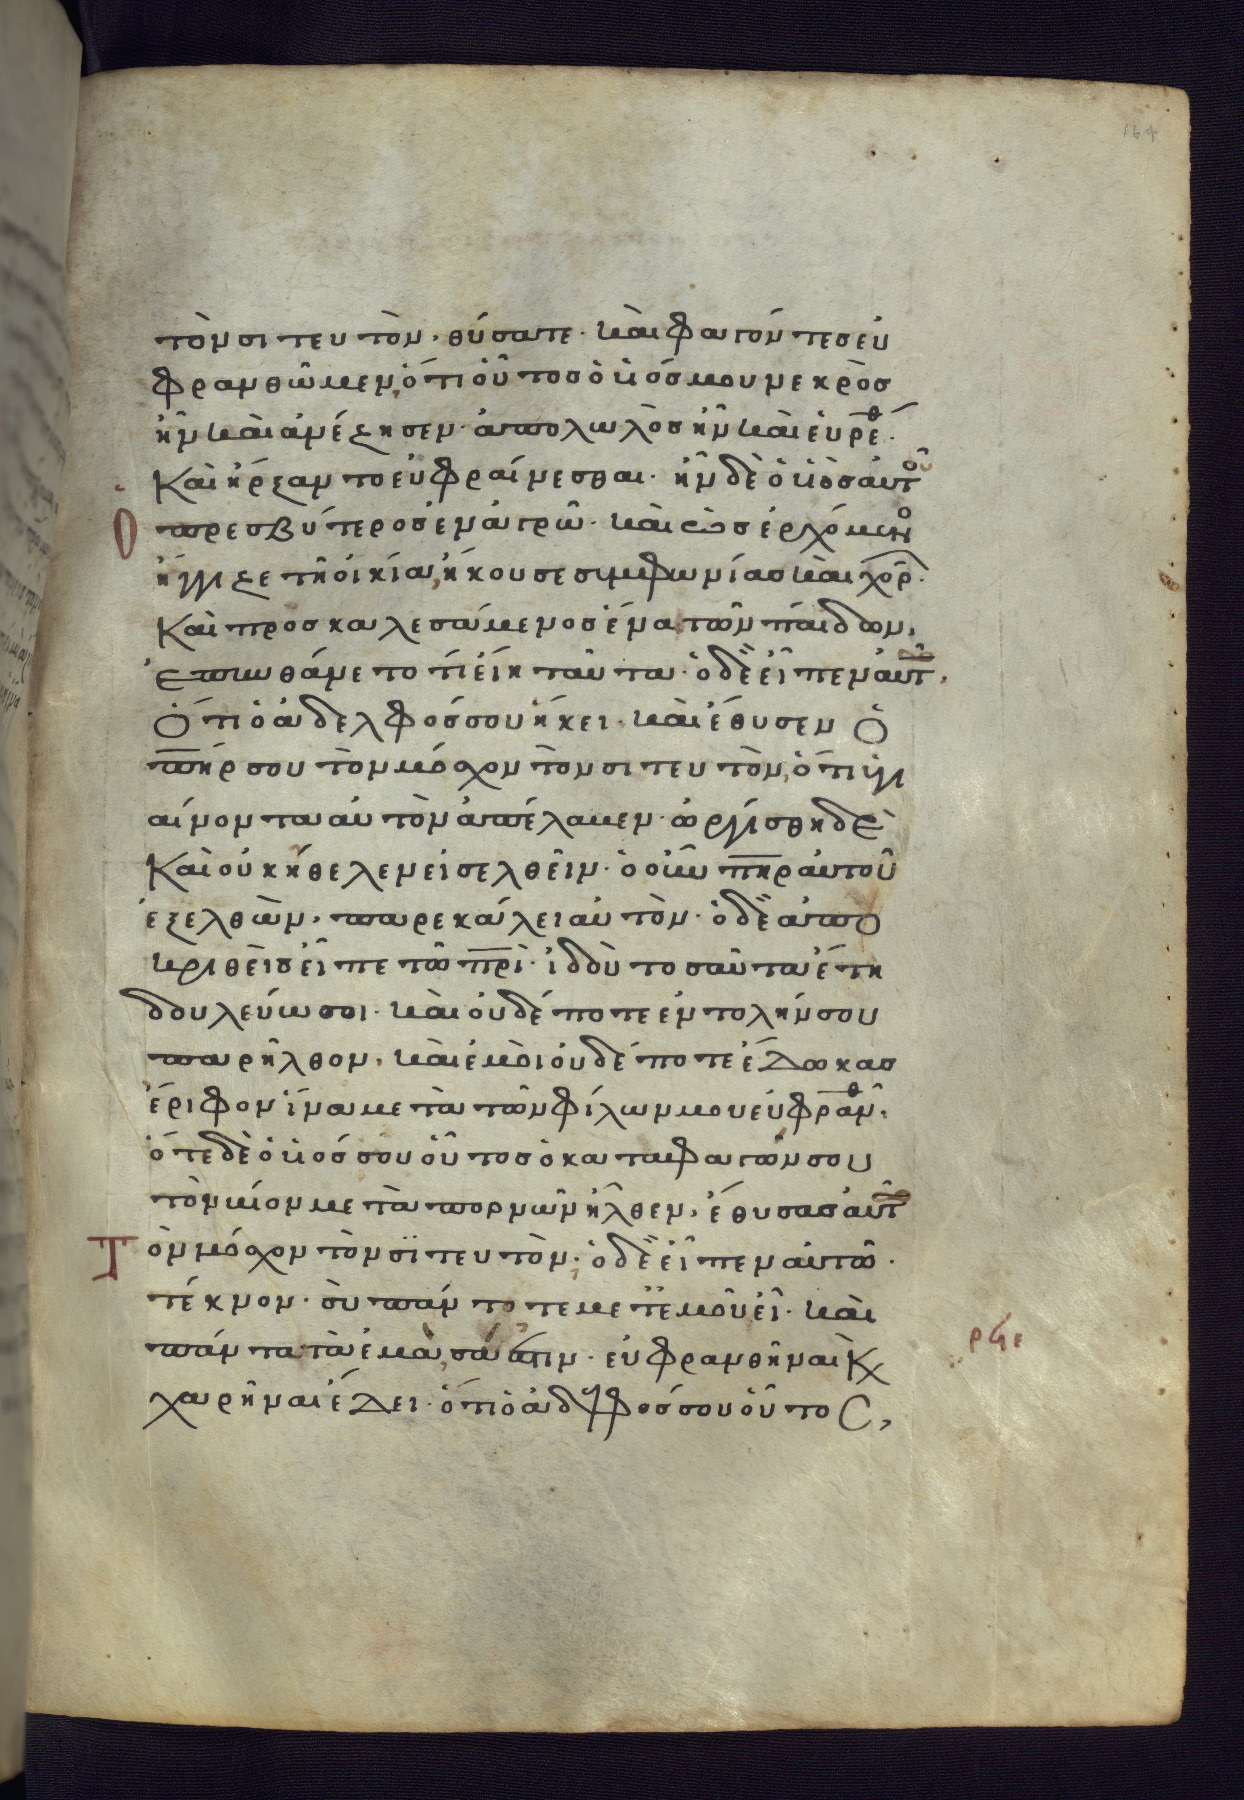 164
τὸν σιτευτὸν· θύσατε· καὶ φαγόντες εὐ
φρανθῶμεν, ὅτι οὗτος ὁ υἱός μου νεκρὸς
ἦν καὶ ἀνέζησεν· ἀπολωλὸς ἦν καὶ εὑρέθ·
Καὶ ἤρξαντο εὐφραίνεσθαι· ἦν δὲ ὁ υἱὸς αὐτοῦ
ὁ πρεσβύτερος ἐν ἀγρῶ· καὶ ὡς ἐρχόμενο
ἤγγιζε τῆ οἰκία, ἤκουσε σιμφωνίας καὶ χορ·
Καὶ προσκαλεσάμενος ἕνα τῶν παίδων,
ἐπυνθάνετο τί εἴη ταῦτα· ὁ δὲ εἶπεν αὐτ,
Ὅτι ὁ ἀδελφός σου ἥκει· καὶ ἔθυσεν ὁ
πηρ σου τὸν μόσχον τὸν σιτευτὸν, ὅτι ὑγι
αίνοντα αὐτὸν ἀπέλαβεν· ὠργίσθη δὲ
Καὶ οὐκ ἤθελεν εἰσελθεῖν· ὁ οὖν πηρ αὐτοῦ
ἐξελθὼν, παρεκάλει αὐτὸν· ὁ δὲ ἀπο
κριθεὶς εἶπε τῶ πρὶ· ἰδοὺ τοσαῦτα ἔτη
δουλεύω σοι· καὶ οὐδέποτε ἐντολήν σου
παρῆλθον, καὶ ἐμοὶ οὐδέποτε ἔδωκας
ἔριφον ἵνα μετὰ τῶν φίλων μου εὐφρανθ,
ὅτε δὲ ὁ υἱός σου οὗτος ὁ καταφαγών σου
τὸν βίον μετὰ πορνῶν ἦλθεν, ἔθυσας αὐτ
Τὸν μόσχον τὸν σϊτευτὸν· ὁ δὲ εἶπεν αὐτῶ·
τέκνον· σὺ πάντοτε μετ ἐμοῦ εἶ· καὶ
πάντα τὰ ἐμὰ, σά ἐστιν· εὐφρανθῆναι κ
χαρῆναι ἔδει· ὅτι ὁ ἀδελφός σου οὗτος,
ρϟε